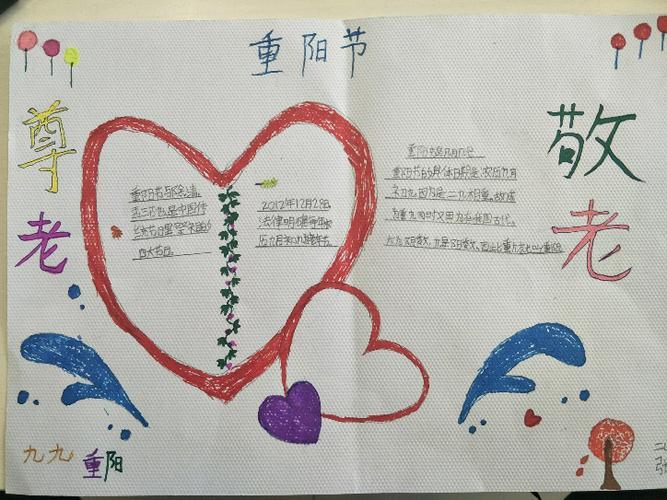 重阳节
尊老
敬老
重阳节与除、清、
孟三节也是中国传
统节日里祭祖的
四大节日。
2012年12月28日
法律明确每年农
历九月初九为老年节
重阳节是几月几号
重阳节的具体日期是:农历九月
初九,因为是二九相重,故成
为重九,同时又因为在我国古代,
六为阴数,九是阳数,因此
九九重阳